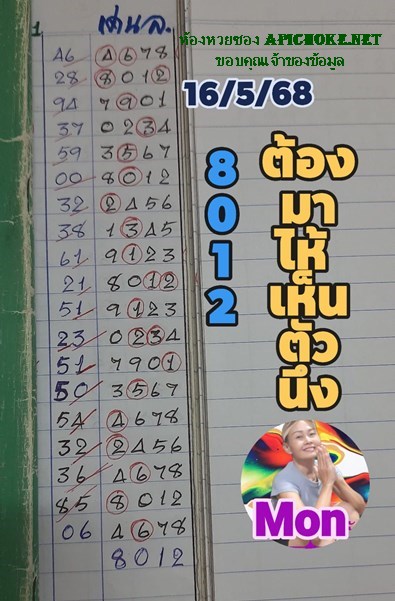 1 เด่น ล.
ห้องหวยซอง APICHOKE.NET
ขอบคุณเจ้าของข้อมูล
16/5/68
46 4678
28 8012
94 7901
37 0234
59 3567
00 8012
32 2456
38 1345
61 9123
21 8012
51 9123
23 0234
51 7901
50 3567
54 4678
32 2456
36 4678
85 8012
06 4678
8012
8
0
1
2
ต้อง
มา
ไห้
เห็น
ตัว
นึง
Mon